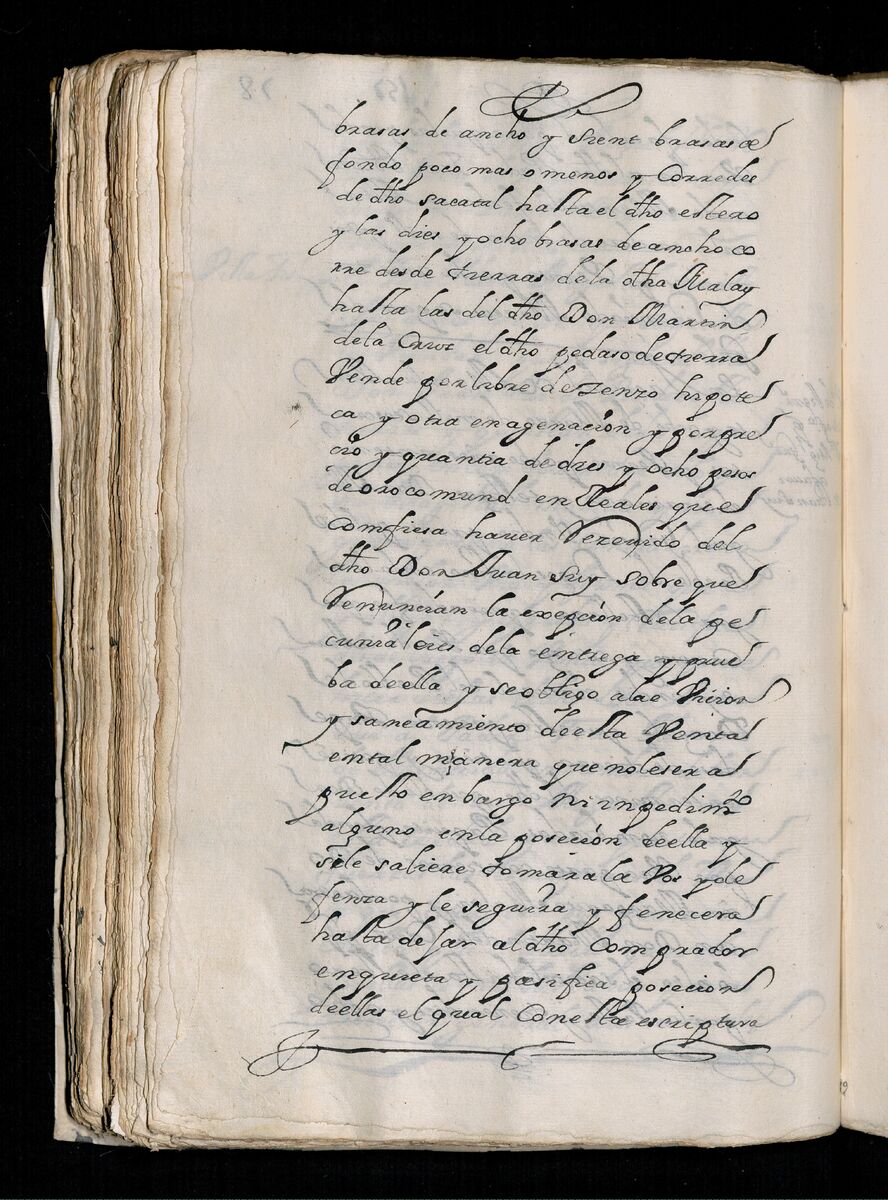 brasas de ancho y sient brasas de
fondo poco mas o menos y Corredes
de dho sacatal hasta el dho estero
y las dies y ocho brasas de ancho co
rre desde tierras de la dha Malay
hasta las del dho Don Martin
dela Cruz el dho pedaso de tierra
Vende por libre de zenzo hipote
ca y otra enagenacion y por pre
cio y quantia de dies y ocho pesos
de oro comund en Reales que
comfiesa haver Rezevido del
dho Don Juan Suy sobre que
Renuncian la exepcion dela pe
cunia leies dela entrega y prue
ba deella y se obligo a la e Viccion
y saneamiento de esta Venta
ental manera que no le sera
puesto enbargo ni inpedimto
alguno enla posecion deella y
sile saliere tomara la Vos y de
fenza y le seguira y fenecera
hasta dejar al dho Comprador
enquieta y pasifica posecion
deellas el qual Con esta escriptura